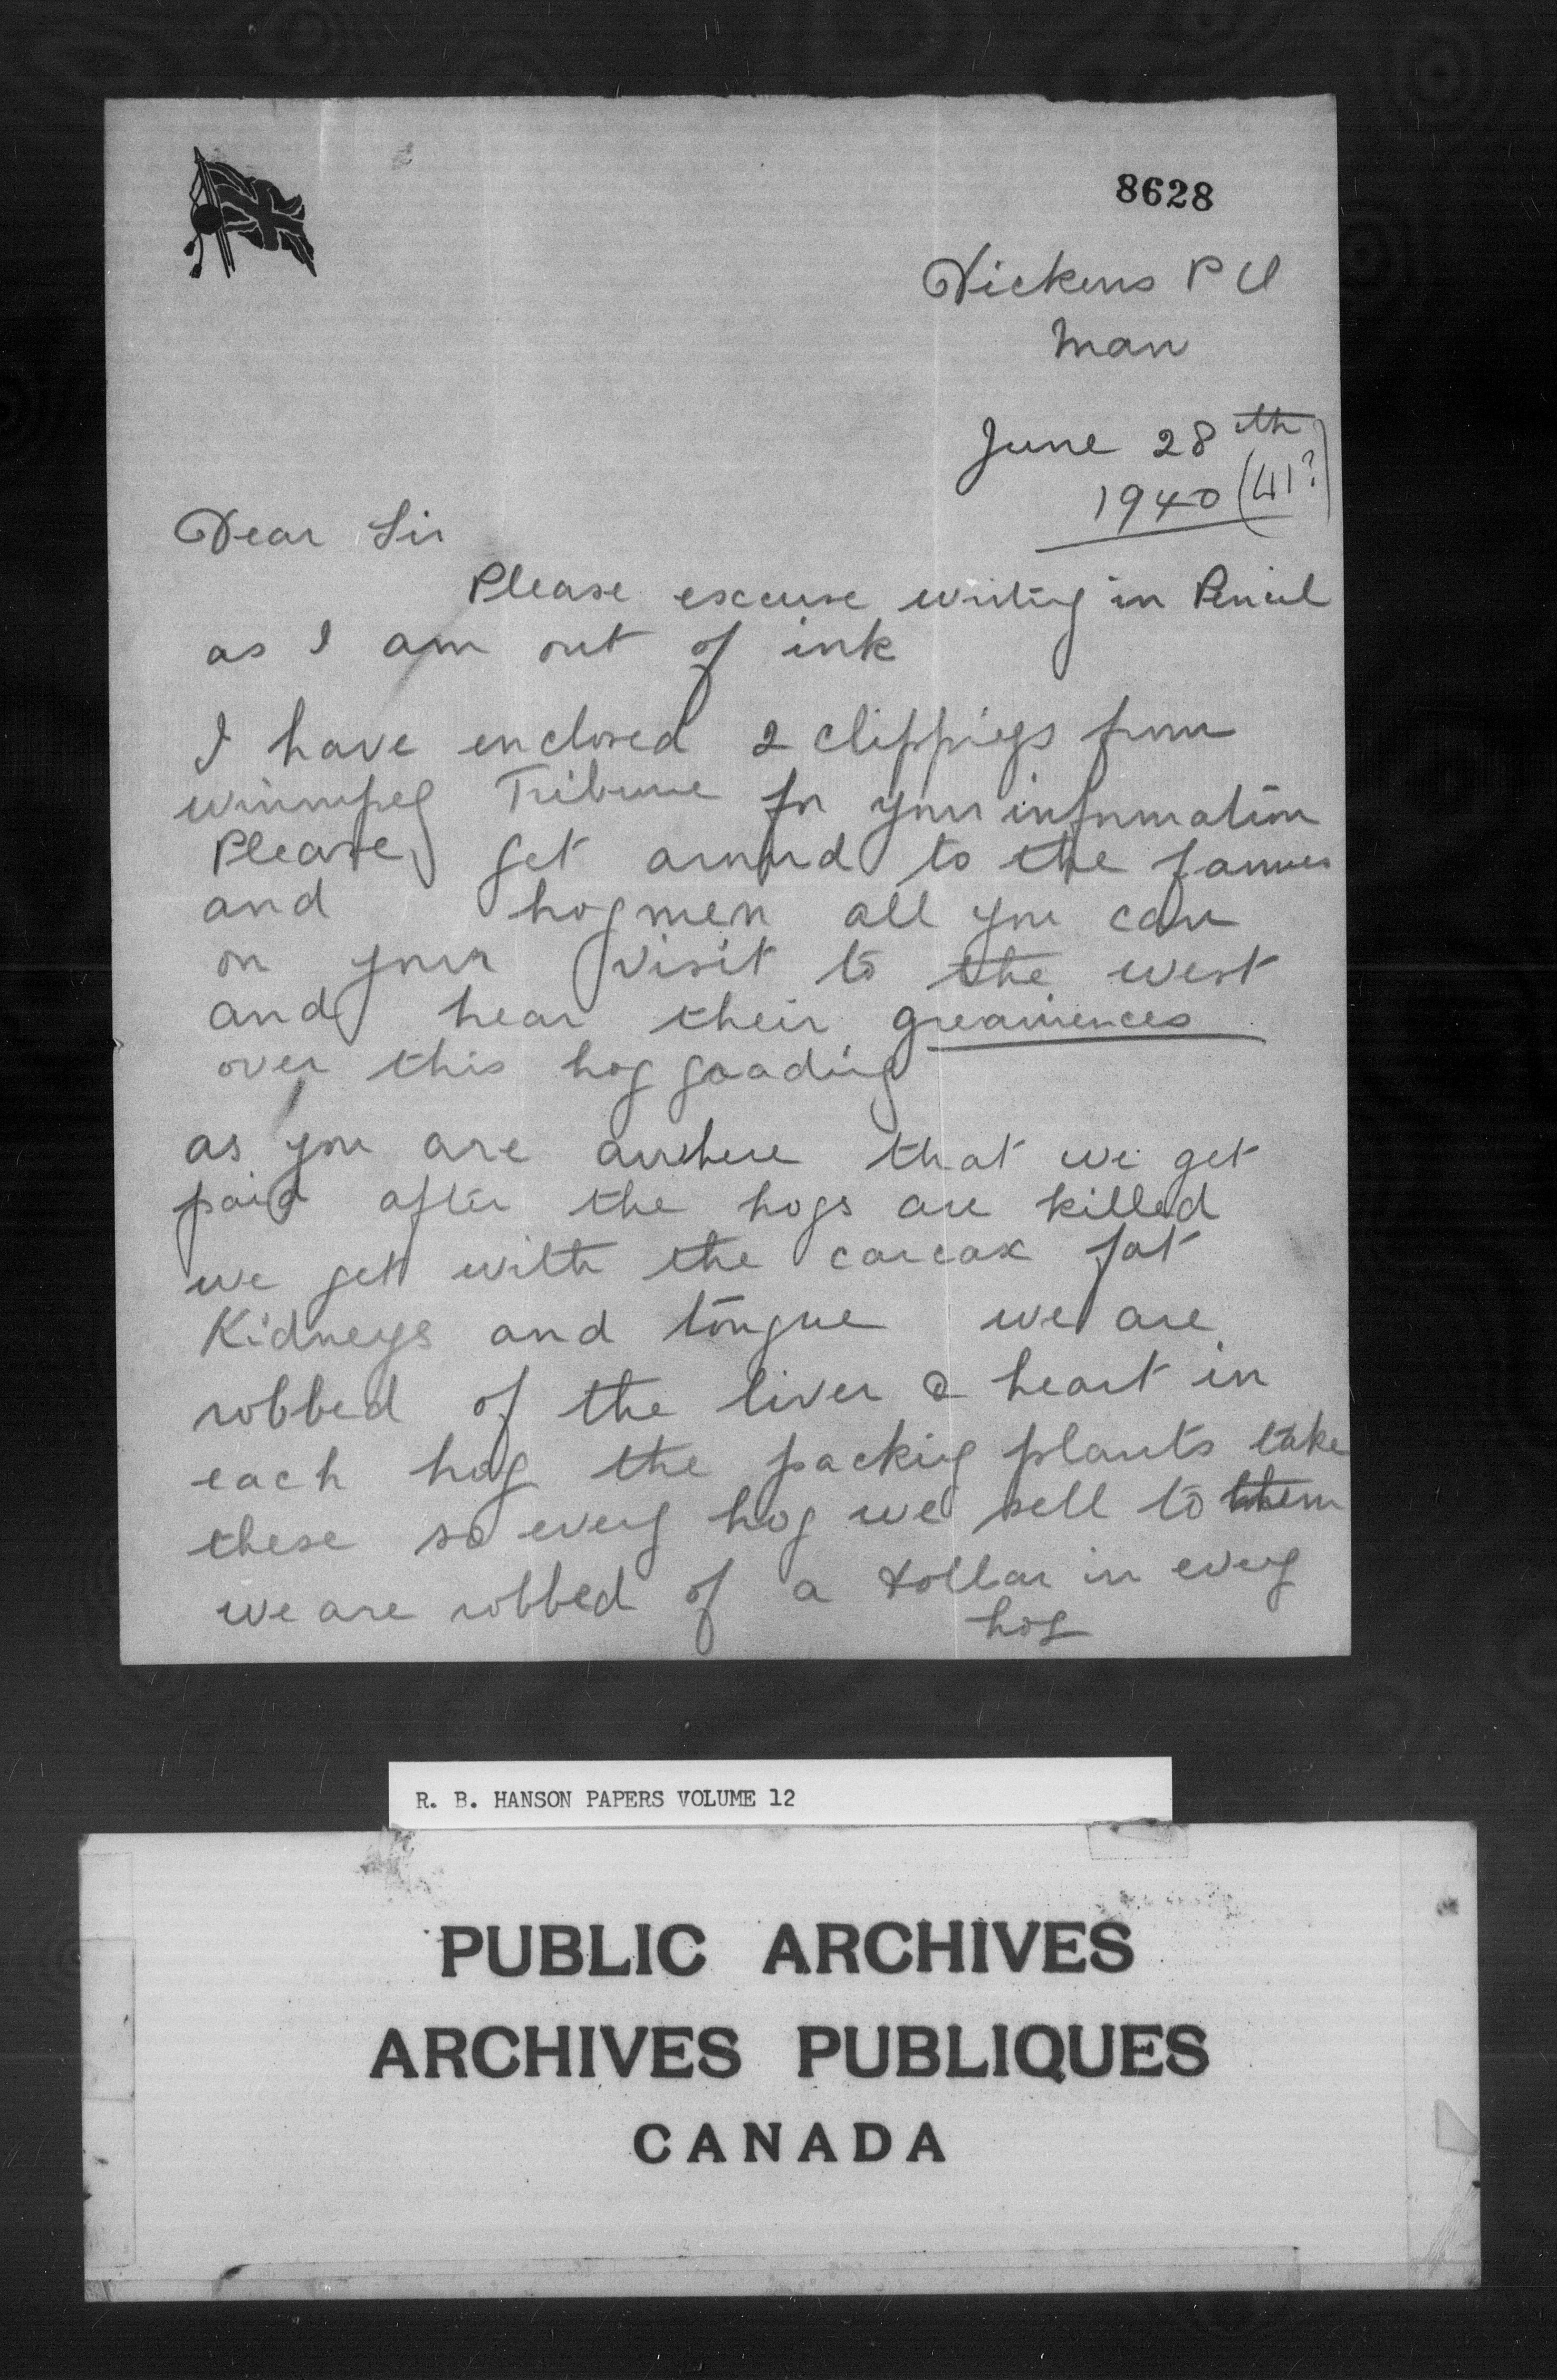 8628
Dickens P O
Man
June 28th
1940 (41?)
Dear Sir
Please excuse writing in Pencil
as I am out of ink
I have enclosed 2 clippings from
winnipeg Tribune for your information
Please get around to the farmers
and hogmen all you can
on your visit to the west
and hear their greaviences
over this hog graading
as you are awhere that we get
paid after the hogs are killed
we get with the carcax fat
Kidneys and tongue we are
robbed of the liver & heart in
each hog the packing plants take
these so every hog we sell to them
we are robbed of a dollar in every
hog
R. B. HANSON PAPERS VOLUME 12
PUBLIC ARCHIVES
ARCHIVES PUBLIQUES
CANADA